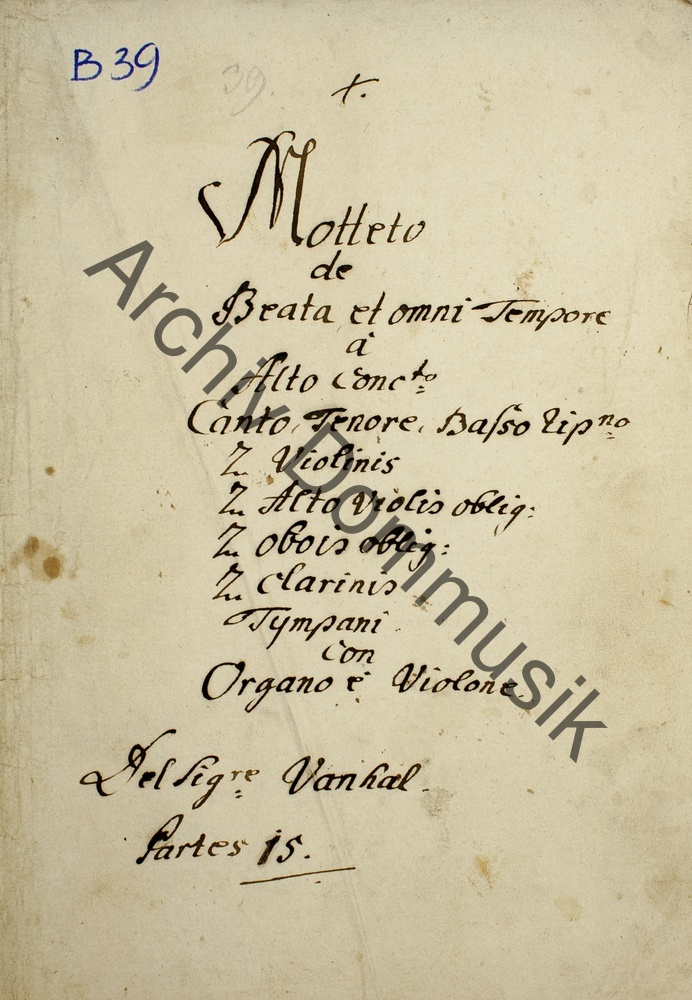 B 39
39.
+.
Motteto
de
Beata et omni Tempore
à
Alto Conc:to
Canto, Tenore, Baſso Rip:no
2 Violinis
2 Alto Violis oblig:
2 obois oblig:
2 Clarinis
Tympani
con
Organo è Violone
Del Sig:re Vanhal.
Partes 15.
Archiv Dommusik